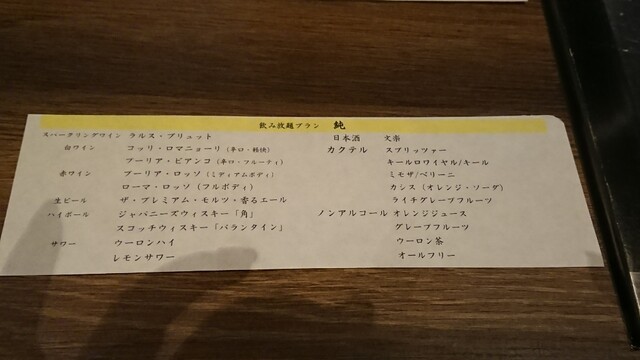 飲み放題プラン 純
スパークリングワイン ラルス・ブリュット
白ワイン コッリ・ロマニョーリ（辛口・軽快）
プーリア・ビアンコ（辛口・フルーティ）
赤ワイン プーリア・ロッソ（ミディアムボディ）
ローマ・ロッソ（フルボディ）
生ビール ザ・プレミアム・モルツ・香るエール
ハイボール ジャパニーズウィスキー「角」
スコッチウィスキー「バランタイン」
サワー ウーロンハイ
レモンサワー
日本酒 文楽
カクテル スプリッツァー
キールロワイヤル/キール
ミモザ/ベリーニ
カシス（オレンジ・ソーダ）
ライチグレープフルーツ
ノンアルコール オレンジジュース
グレープフルーツ
ウーロン茶
オールフリー